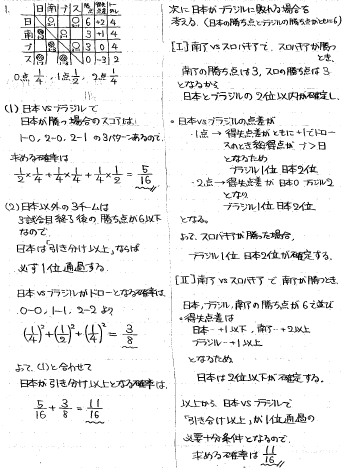 1.
日 南 ブ ス 勝点 得失 得点
日 6 +2 4
南 3 +1 4
ブ 3 0 4
ス 0 -3 2
0点 1/4, 1点 1/2, 2点 1/4
(1) 日本 vs ブラジルで
日本が勝つ場合のスコアは
1-0, 2-0, 2-1 の3パターンあるので
求める確率は
1/2 × 1/4 + 1/4 × 1/4 + 1/4 × 1/2 = 5/16
(2) 日本以外の3チームは
3試合目終了後の勝ち点が6以下
なので
日本は「引き分け以上」ならば
必ず1位通過する.
日本 vs ブラジルがドローとなる確率は
0-0, 1-1, 2-2 より
(1/4)² + (1/2)² + (1/4)² = 3/8
よって, (1)と合わせて
日本が引き分け以上となる確率は.
5/16 + 3/8 = 11/16
次に日本がブラジルに敗れる場合を
考える. (日本の勝ち点とブラジルの勝ち点がともに6)
[I] 南ア vs スロバキアで、スロバキアが勝つ
とき,
南アの勝ち点は3, スロの勝ち点は3
となるから
日本とブラジルの2位以内が確定し,
・日本 vs ブラジルの点差が
・1点 → 得失点差がともに+1でドロー
のとき総得点が ブ > 日
となるため
ブラジル1位 日本2位
・2点 → 得失点差が 日本0 ブジル2
となり
ブラジル1位 日本2位
となる。
よって, スロバキアが勝った場合,
ブラジル1位 日本2位が確定する.
[II] 南ア vs スロバキアで 南アが勝つとき.
日本, ブラジル, 南アの勝ち点が6で並び
・得失点差は
日本…+1以下, 南ア…+2以上
ブラジル…+1以上
となるため.
日本は2位以下が確定する.
以上から, 日本 vs ブラジルで
「引き分け以上」が1位通過の
必要十分条件となるので.
求める確率は 11/16